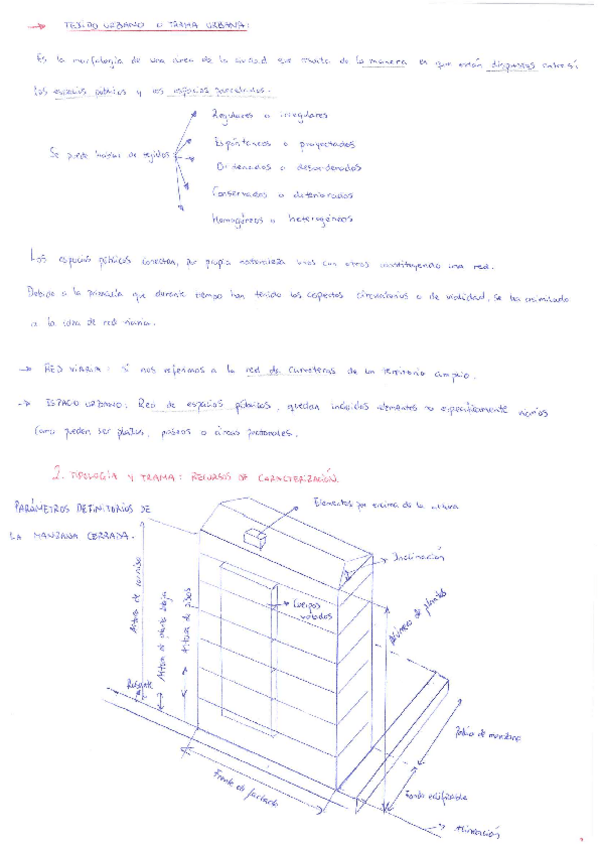 → TEJIDO URBANO O TRAMA URBANA:
Es la morfología de una área de la ciudad que resulta de la manera en que están dispuestos entre sí
los espacios públicos y los espacios parcelados.
Se puede hablar de tejidos
Regulares o irregulares
Espontáneos o proyectados
Ordenados o desordenados
Conservados o deteriorados
Homogéneos o heterogéneos
Los espacios públicos conectan, por propia naturaleza unos con otros constituyendo una red.
Debido a la primacía que durante tiempo han tenido los aspectos circulatorios o de vialidad, se ha asimilado
a la idea de red viaria.
→ RED VIARIA: si nos referimos a la red de carreteras de un territorio amplio.
→ ESPACIO URBANO: Red de espacios públicos, quedan incluidos elementos no específicamente viarios
como pueden ser plazas, paseos o áreas peatonales.
2. TIPOLOGÍA Y TRAMA: RECURSOS DE CARACTERIZACIÓN.
PARÁMETROS DEFINITORIOS DE
LA MANZANA CERRADA.
Elementos por encima de la altura
Inclinación
Cuerpos
volados
Altura de cornisa
Altura de planta baja
Altura de pisos
Número de plantas
Rasante
Patio de manzana
Frente de fachada
Fondo edificable
Alineación